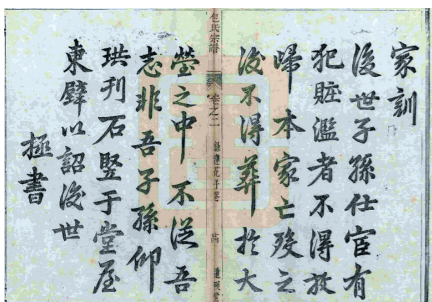 家訓
後世子孫仕宦有
犯賍濫者不得放
歸本家亡殁之
後不得葬於大
包氏宗譜
卷之二
塋之中不從吾
志非吾子孫仰
珙刋石竪于堂屋
東壁以詔後世
極書